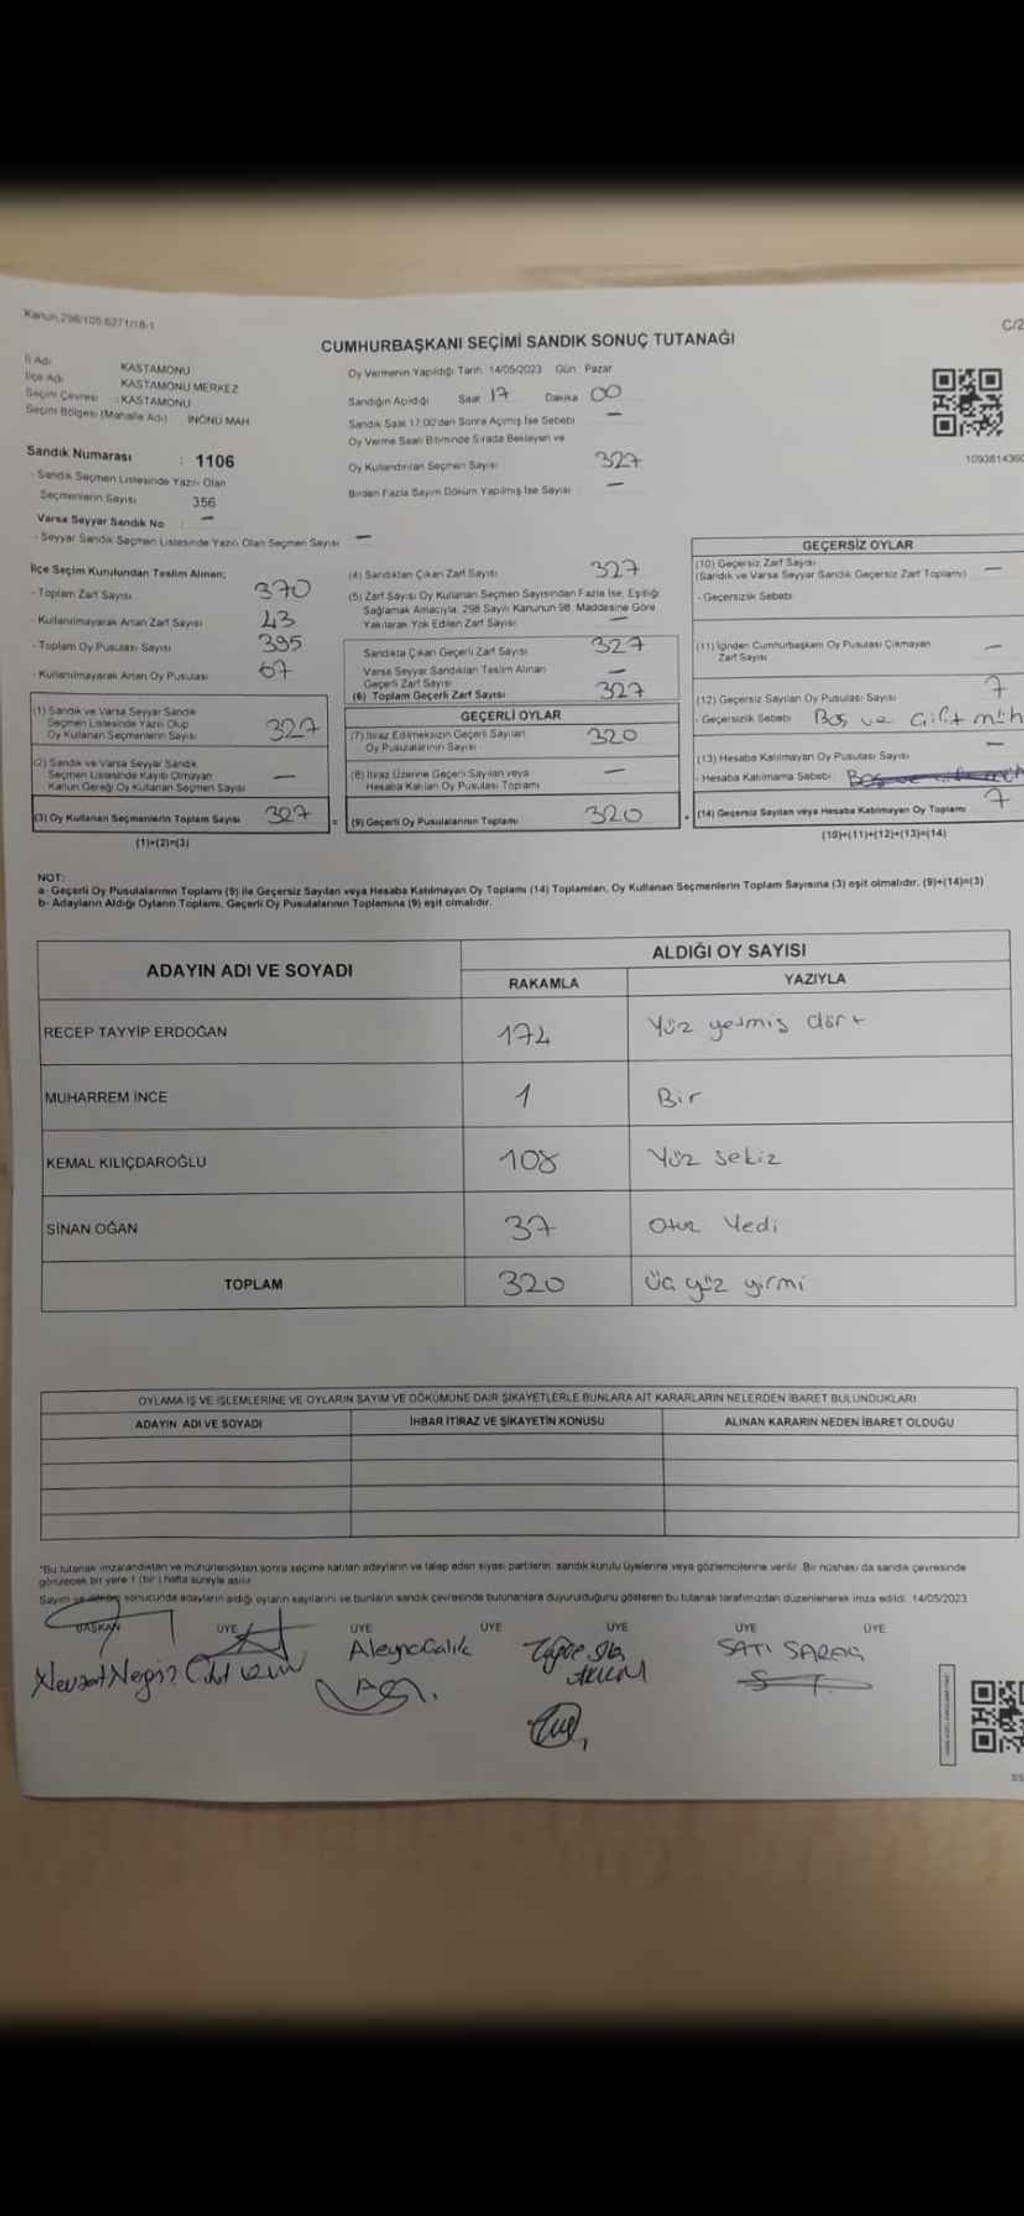 Kanun 298/105 6271/18-1
C/2
CUMHURBAŞKANI SEÇİMİ SANDIK SONUÇ TUTANAĞI
İl Adı KASTAMONU
İlçe Adı KASTAMONU MERKEZ
Seçim Çevresi : KASTAMONU
Seçim Bölgesi (Mahalle Adı) İNÖNÜ MAH.
Sandık Numarası : 1106
- Sandık Seçmen Listesinde Yazılı Olan
Seçmenlerin Sayısı 356
Varsa Seyyar Sandık No : —
- Seyyar Sandık Seçmen Listesinde Yazılı Olan Seçmen Sayısı —
Oy Vermenin Yapıldığı Tarih: 14/05/2023 Gün: Pazar
Sandığın Açıldığı Saat 17 Dakika 00
Sandık Saat 17.00'den Sonra Açılmış İse Sebebi —
Oy Verme Saati Bitiminde Sırada Bekleyen ve
Oy Kullandırılan Seçmen Sayısı 327
Birden Fazla Sayım Döküm Yapılmış İse Sayısı —
İlçe Seçim Kurulundan Teslim Alınan;
- Toplam Zarf Sayısı 370
- Kullanılmayarak Artan Zarf Sayısı 43
- Toplam Oy Pusulası Sayısı 395
- Kullanılmayarak Artan Oy Pusulası 67
(1) Sandık ve Varsa Seyyar Sandık
Seçmen Listesinde Yazılı Olup
Oy Kullanan Seçmenlerin Sayısı 327
(2) Sandık ve Varsa Seyyar Sandık
Seçmen Listesinde Kayıtlı Olmayan
Kanun Gereği Oy Kullanan Seçmen Sayısı —
(3) Oy Kullanan Seçmenlerin Toplam Sayısı 327
(1)+(2)=(3)
(4) Sandıktan Çıkan Zarf Sayısı 327
(5) Zarf Sayısı Oy Kullanan Seçmen Sayısından Fazla İse, Eşitliği
Sağlamak Amacıyla, 298 Sayılı Kanunun 98. Maddesine Göre
Yakılarak Yok Edilen Zarf Sayısı —
Sandıkta Çıkan Geçerli Zarf Sayısı 327
Varsa Seyyar Sandıktan Teslim Alınan
Geçerli Zarf Sayısı —
(6) Toplam Geçerli Zarf Sayısı 327
GEÇERLİ OYLAR
(7) İtiraz Edilmeksizin Geçerli Sayılan
Oy Pusulalarının Sayısı 320
(8) İtiraz Üzerine Geçerli Sayılan veya
Hesaba Katılan Oy Pusulası Toplamı —
= (9) Geçerli Oy Pusulalarının Toplamı 320
GEÇERSİZ OYLAR
(10) Geçersiz Zarf Sayısı
(Sandık ve Varsa Seyyar Sandık Geçersiz Zarf Toplamı) —
- Geçersizlik Sebebi
(11) İçinden Cumhurbaşkanı Oy Pusulası Çıkmayan
Zarf Sayısı —
(12) Geçersiz Sayılan Oy Pusulası Sayısı 7
- Geçersizlik Sebebi Boş ve Çift müh
(13) Hesaba Katılmayan Oy Pusulası Sayısı —
- Hesaba Katılmama Sebebi
+ (14) Geçersiz Sayılan veya Hesaba Katılmayan Oy Toplamı 7
(10)+(11)+(12)+(13)=(14)
NOT:
a- Geçerli Oy Pusulalarının Toplamı (9) ile Geçersiz Sayılan veya Hesaba Katılmayan Oy Toplamı (14) Toplamları, Oy Kullanan Seçmenlerin Toplam Sayısına (3) eşit olmalıdır. (9)+(14)=(3)
b- Adayların Aldığı Oyların Toplamı, Geçerli Oy Pusulalarının Toplamına (9) eşit olmalıdır.
ADAYIN ADI VE SOYADI
ALDIĞI OY SAYISI
RAKAMLA YAZIYLA
RECEP TAYYİP ERDOĞAN 174 Yüz yetmiş dört
MUHARREM İNCE 1 Bir
KEMAL KILIÇDAROĞLU 108 Yüz sekiz
SİNAN OĞAN 37 Otuz Yedi
TOPLAM 320 Üç yüz yirmi
OYLAMA İŞ VE İŞLEMLERİNE VE OYLARIN SAYIM VE DÖKÜMÜNE DAİR ŞİKAYETLERLE BUNLARA AİT KARARLARIN NELERDEN İBARET BULUNDUKLARI
ADAYIN ADI VE SOYADI İHBAR İTİRAZ VE ŞİKAYETİN KONUSU ALINAN KARARIN NEDEN İBARET OLDUĞU
*Bu tutanak imzalandıktan ve mühürlendikten sonra seçime katılan adayların ve talep eden siyasi partilerin, sandık kurulu üyelerine veya gözlemcilerine verilir. Bir nüshası da sandık çevresinde
görülecek bir yere 1 (bir) hafta süreyle asılır.
Sayım ve döküm sonucunda adayların aldığı oyların sayılarını ve bunların sandık çevresinde bulunanlara duyurulduğunu gösteren bu tutanak tarafımızdan düzenlenerek imza edildi. 14/05/2023
BAŞKAN ÜYE ÜYE ÜYE ÜYE ÜYE ÜYE
Aleyna Calik
SATI SARAÇ